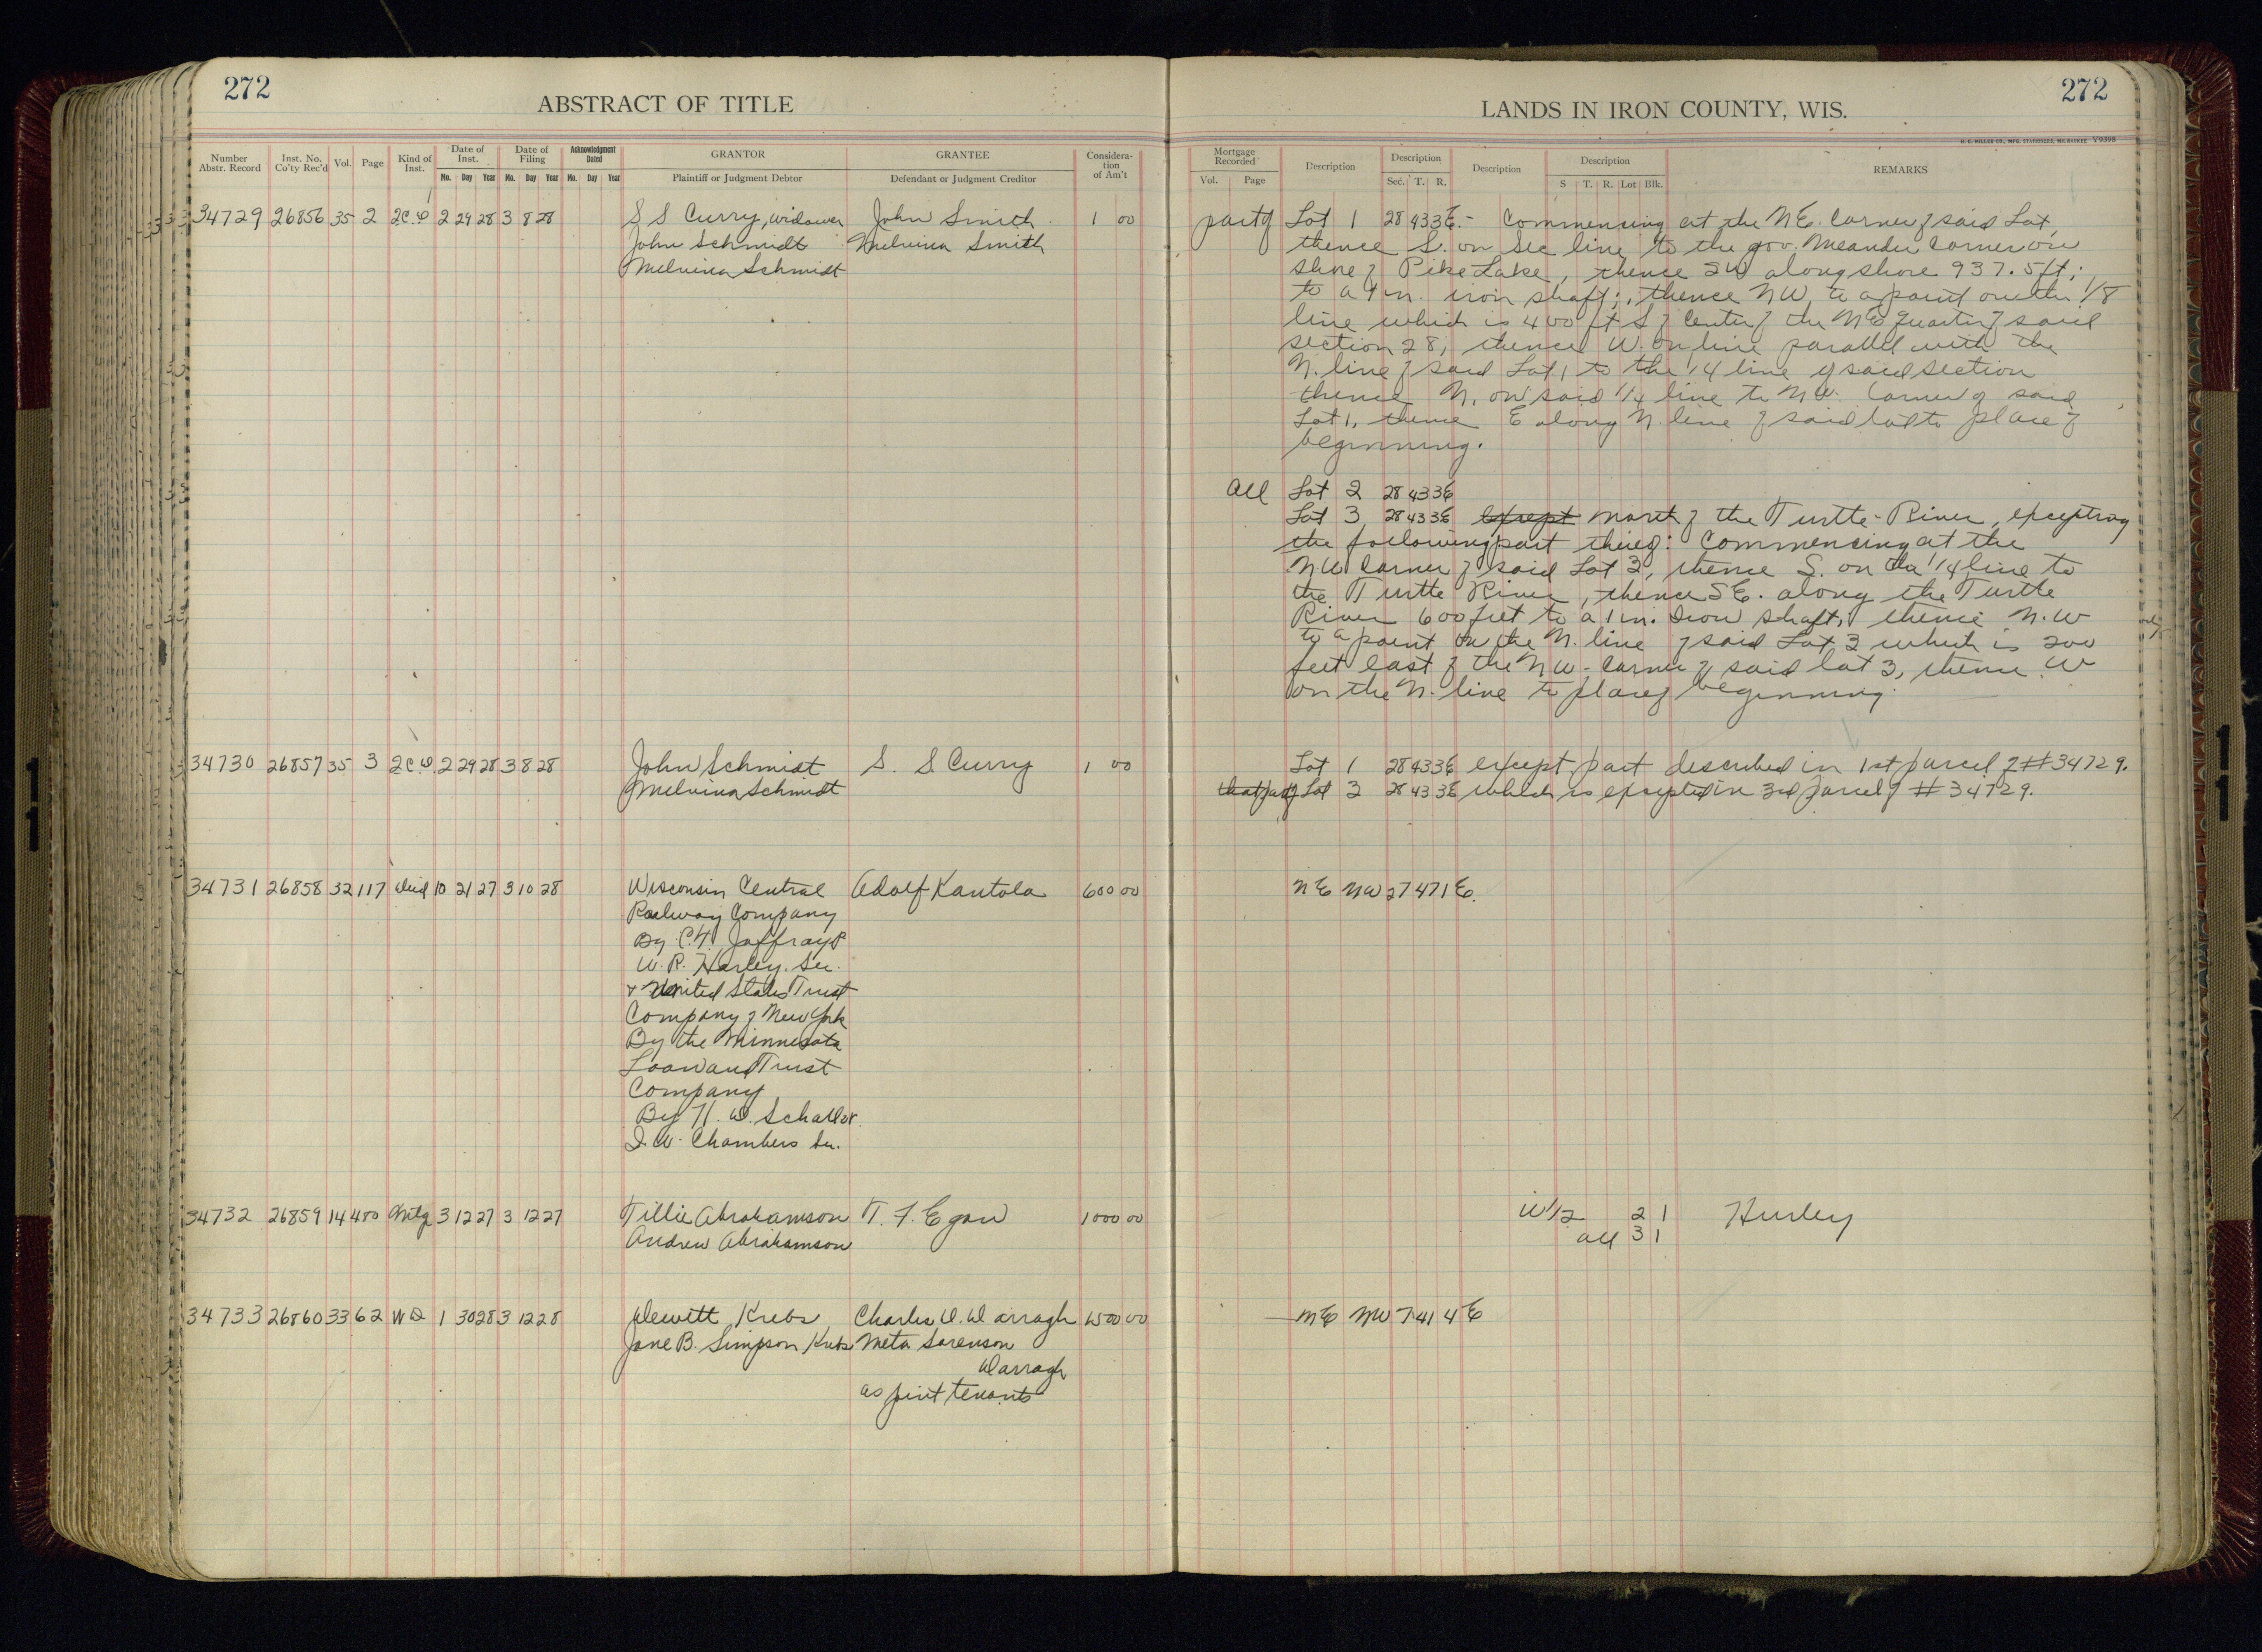 272
ABSTRACT OF TITLE
Number Abstr. Record
Inst. No. Co'ty Rec'd
Vol.
Page
Kind of Inst.
Date of Inst.
Mo. Day Year
Date of Filing
Mo. Day Year
Acknowledgment Dated
Mo. Day Year
GRANTOR
Plaintiff or Judgment Debtor
GRANTEE
Defendant or Judgment Creditor
Consideration of Am't
34729 26856 35 2 2C.D 2 29 28 3 8 28 S S Curry, widower John Smith 1 00
John Schmidt Melvina Smith
Melvina Schmidt
34730 26857 35 3 2C.D. 2 29 28 3 8 28 John Schmidt S. S. Curry 1 00
Melvina Schmidt
34731 26858 32 117 Deed 10 21 27 3 10 28 Wisconsin Central Adolf Kantola 600 00
Railway Company
By C.T. Jaffray P
W. R. Harley. Sec.
+ United States Trust
Company of New York
By the Minnesota
Loan and Trust
Company
By H. D. Schaller
I. W. Chambers Sec.
34732 26859 14 480 Mtg 3 12 27 3 12 27 Tillie Abrahamson T. F. Egan 1000 00
Andrew Abrahamson
34733 26860 33 62 WD 1 30 28 3 12 28 Dewitt Krebs Charles D. Darragh 1500 00
Jane B. Simpson Krebs Meta Sorenson
Darragh
as joint tenants
272
LANDS IN IRON COUNTY, WIS.
H. C. MILLER CO., MFG. STATIONERS, MILWAUKEE V9398
Mortgage Recorded
Vol. Page
Description
Description
Sec. T. R.
Description
Description
S T. R. Lot Blk.
REMARKS
part of Lot 1 28 43 3E - Commencing at the NE. Corner of said Lot,
thence S. on Sec line to the gov. Meander Corner on
shore of Pike Lake, thence SW along shore 937.5 ft;
to a 1 in. iron shaft;, thence NW, to a point on the 1/8
line which is 400 ft S of Center of the NE quarter of said
section 28; thence W. on line parallel with the
N. line of said Lot 1 to the 1/4 line of said section
thence N. on said 1/4 line to NW. Corner of said
Lot 1, thence E along N. line of said lot to place of
beginning.
All Lot 2 28 43 3E
Lot 3 28 43 3E except north of the Turtle River, excepting
the following part thereof: Commencing at the
NW Corner of said Lot 3, thence S. on the 1/4 line to
the Turtle River, thence SE. along the Turtle
River 600 feet to a 1 in. Iron shaft, thence N.W
to a point on the N. line of said Lot 3 which is 200
feet east of the NW. Corner of said lot 3, thence W
on the N. line to place of beginning.
Lot 1 28 43 3E except part described in 1st parcel of #34729.
that part of Lot 3 28 43 3E which is excepted in 3rd parcel of #34729.
NE NW 27 47 1E.
W1/2 2 1 Hurley
all 3 1
NE NW 7 41 4E